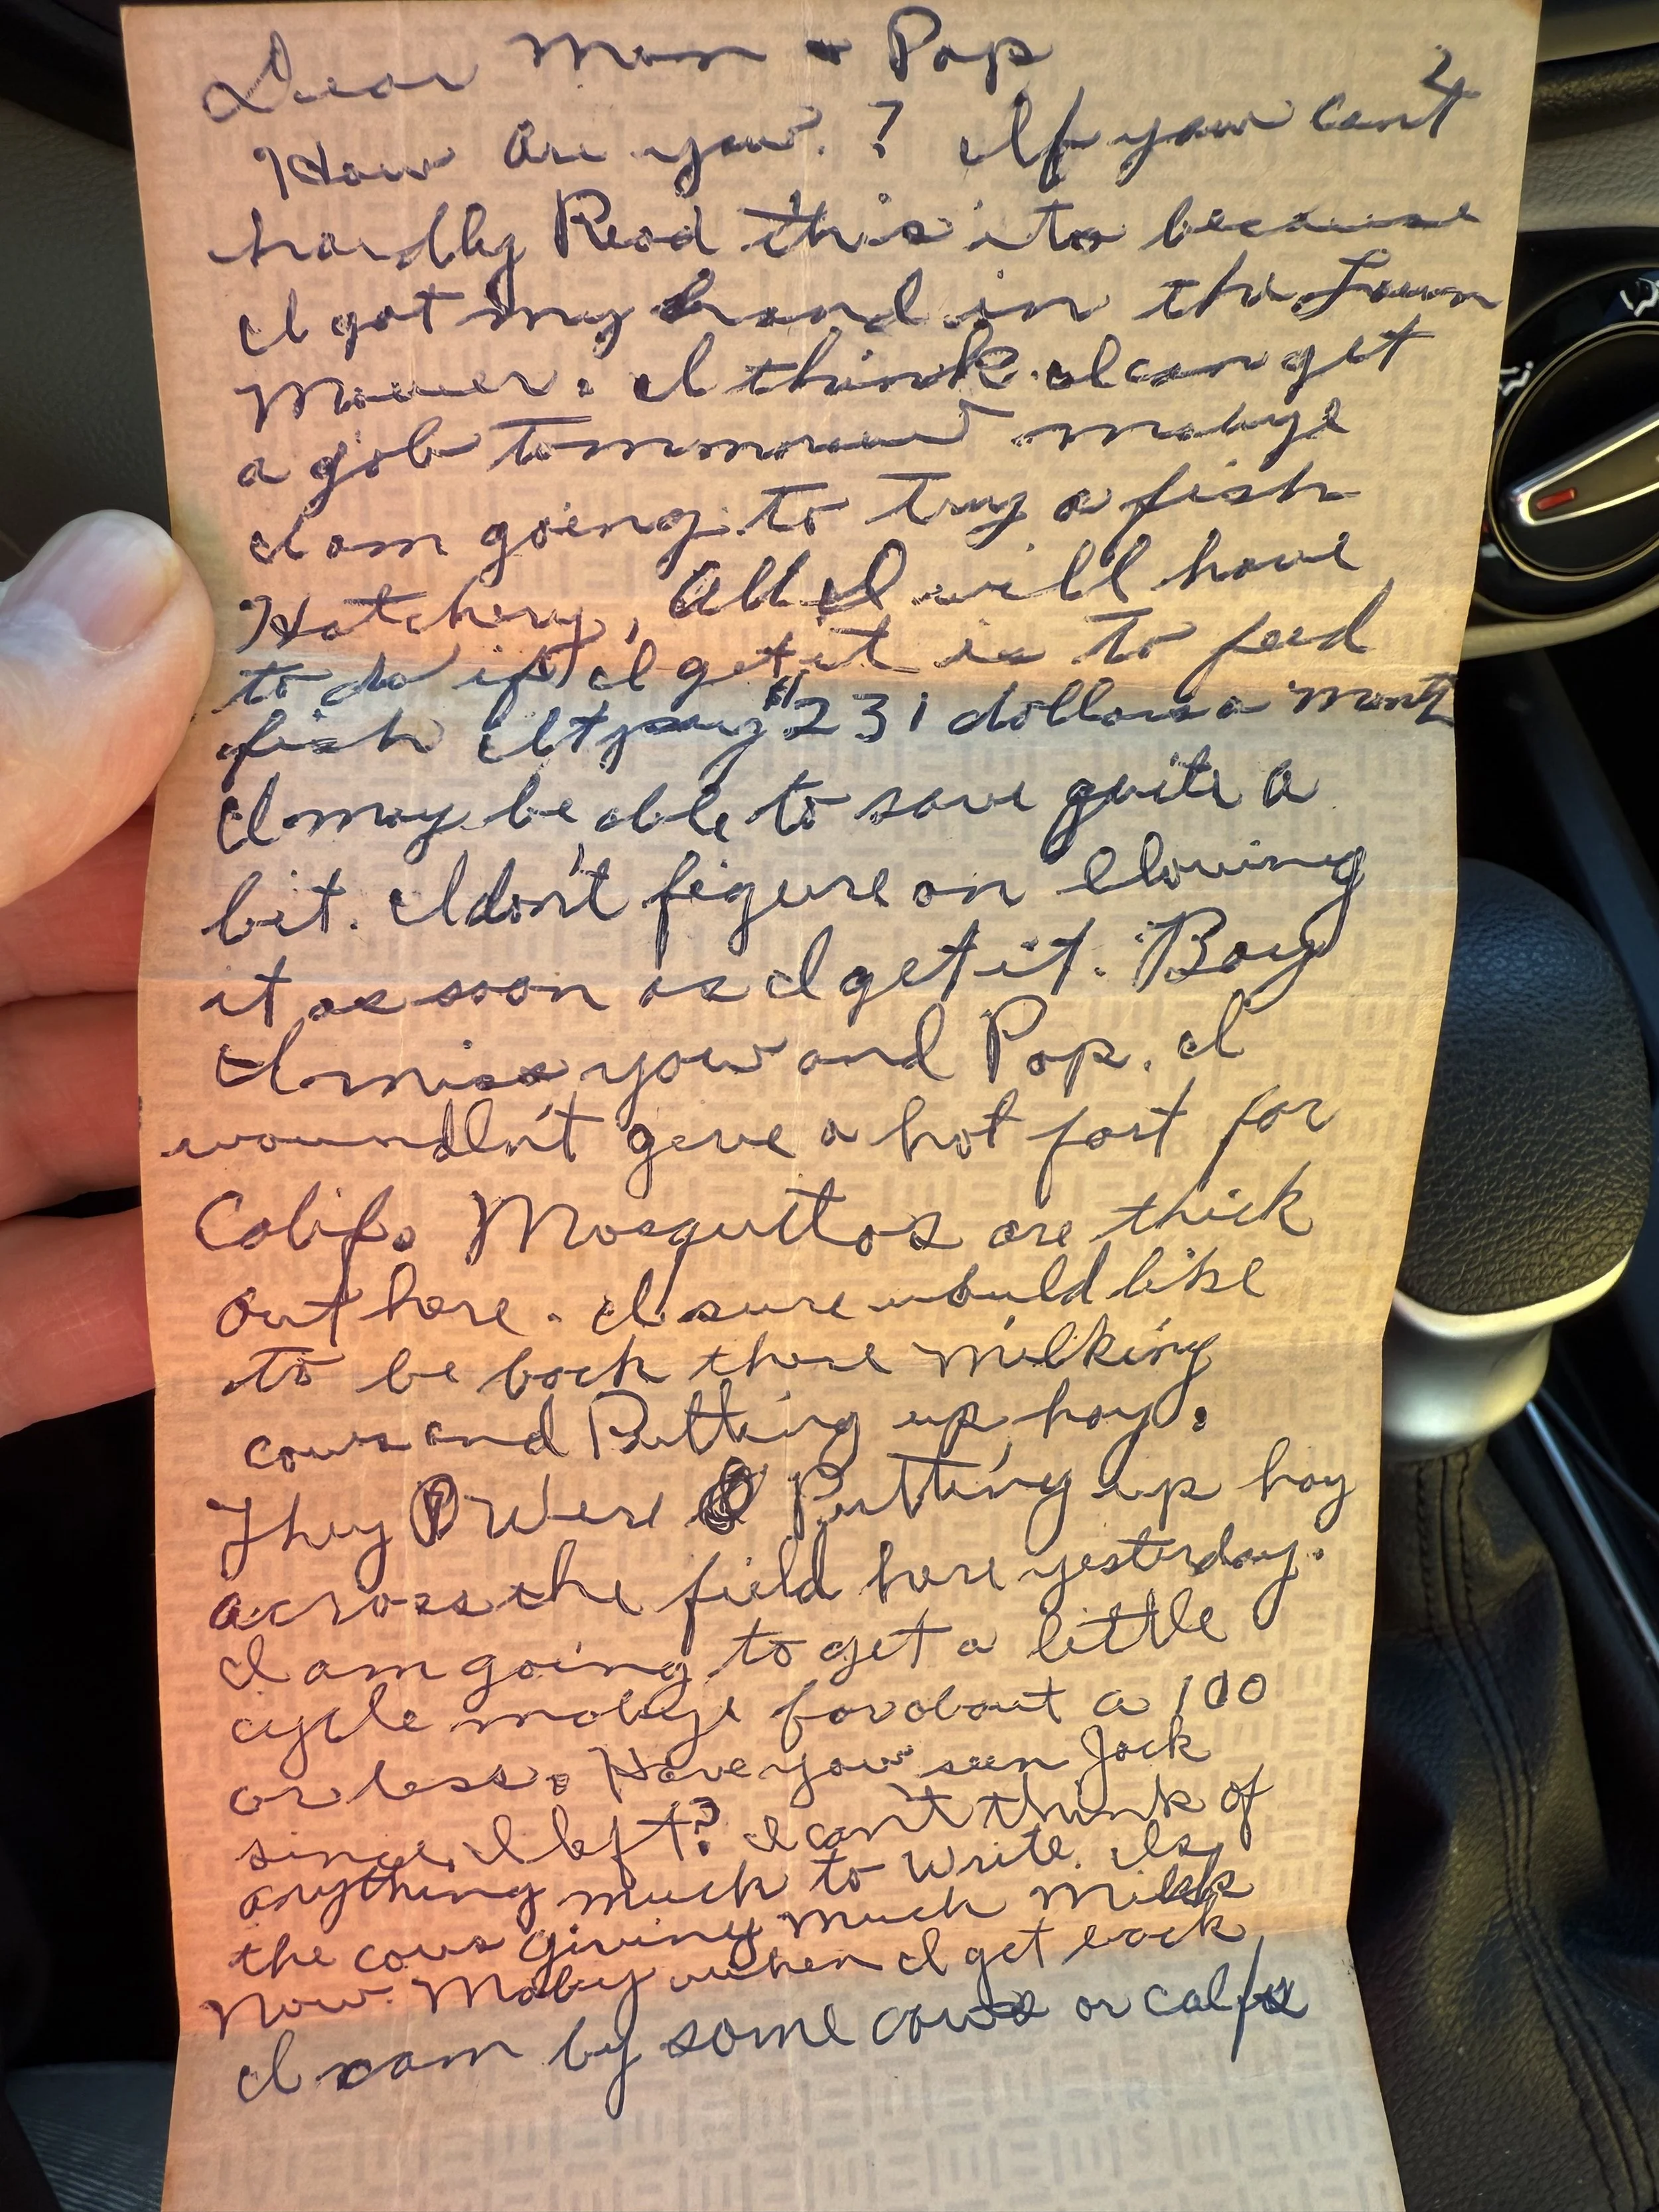 Dear Mom + Pop
2
How are you? If you cant
hardly Read this its because
I got my hand in the Lawn
Mower. I think I can get
a job tommorow mabye
I am going to try a fish
Hatchery, All I will have
to do if I get it is to feed
fish It pay $231 dollars a mont
I may be able to save quite a
bit. I don't figure on blowing
it as soon as I get it. Boy
I miss you and Pop. I
woundln't give a hot fart for
Calif. Mosquttos are thick
out here. I sure would like
to be back there milking
cows and Putting up hay.
They Were Putting up hay
across the field here yesterday.
I am going to get a little
cycle mabye for about a 100
or less. Have you seen Jack
since I left? I can't think of
anything much to write. Is
the cows giving much Milk
Now. Maby when I get back
I cam by some cows or calfs